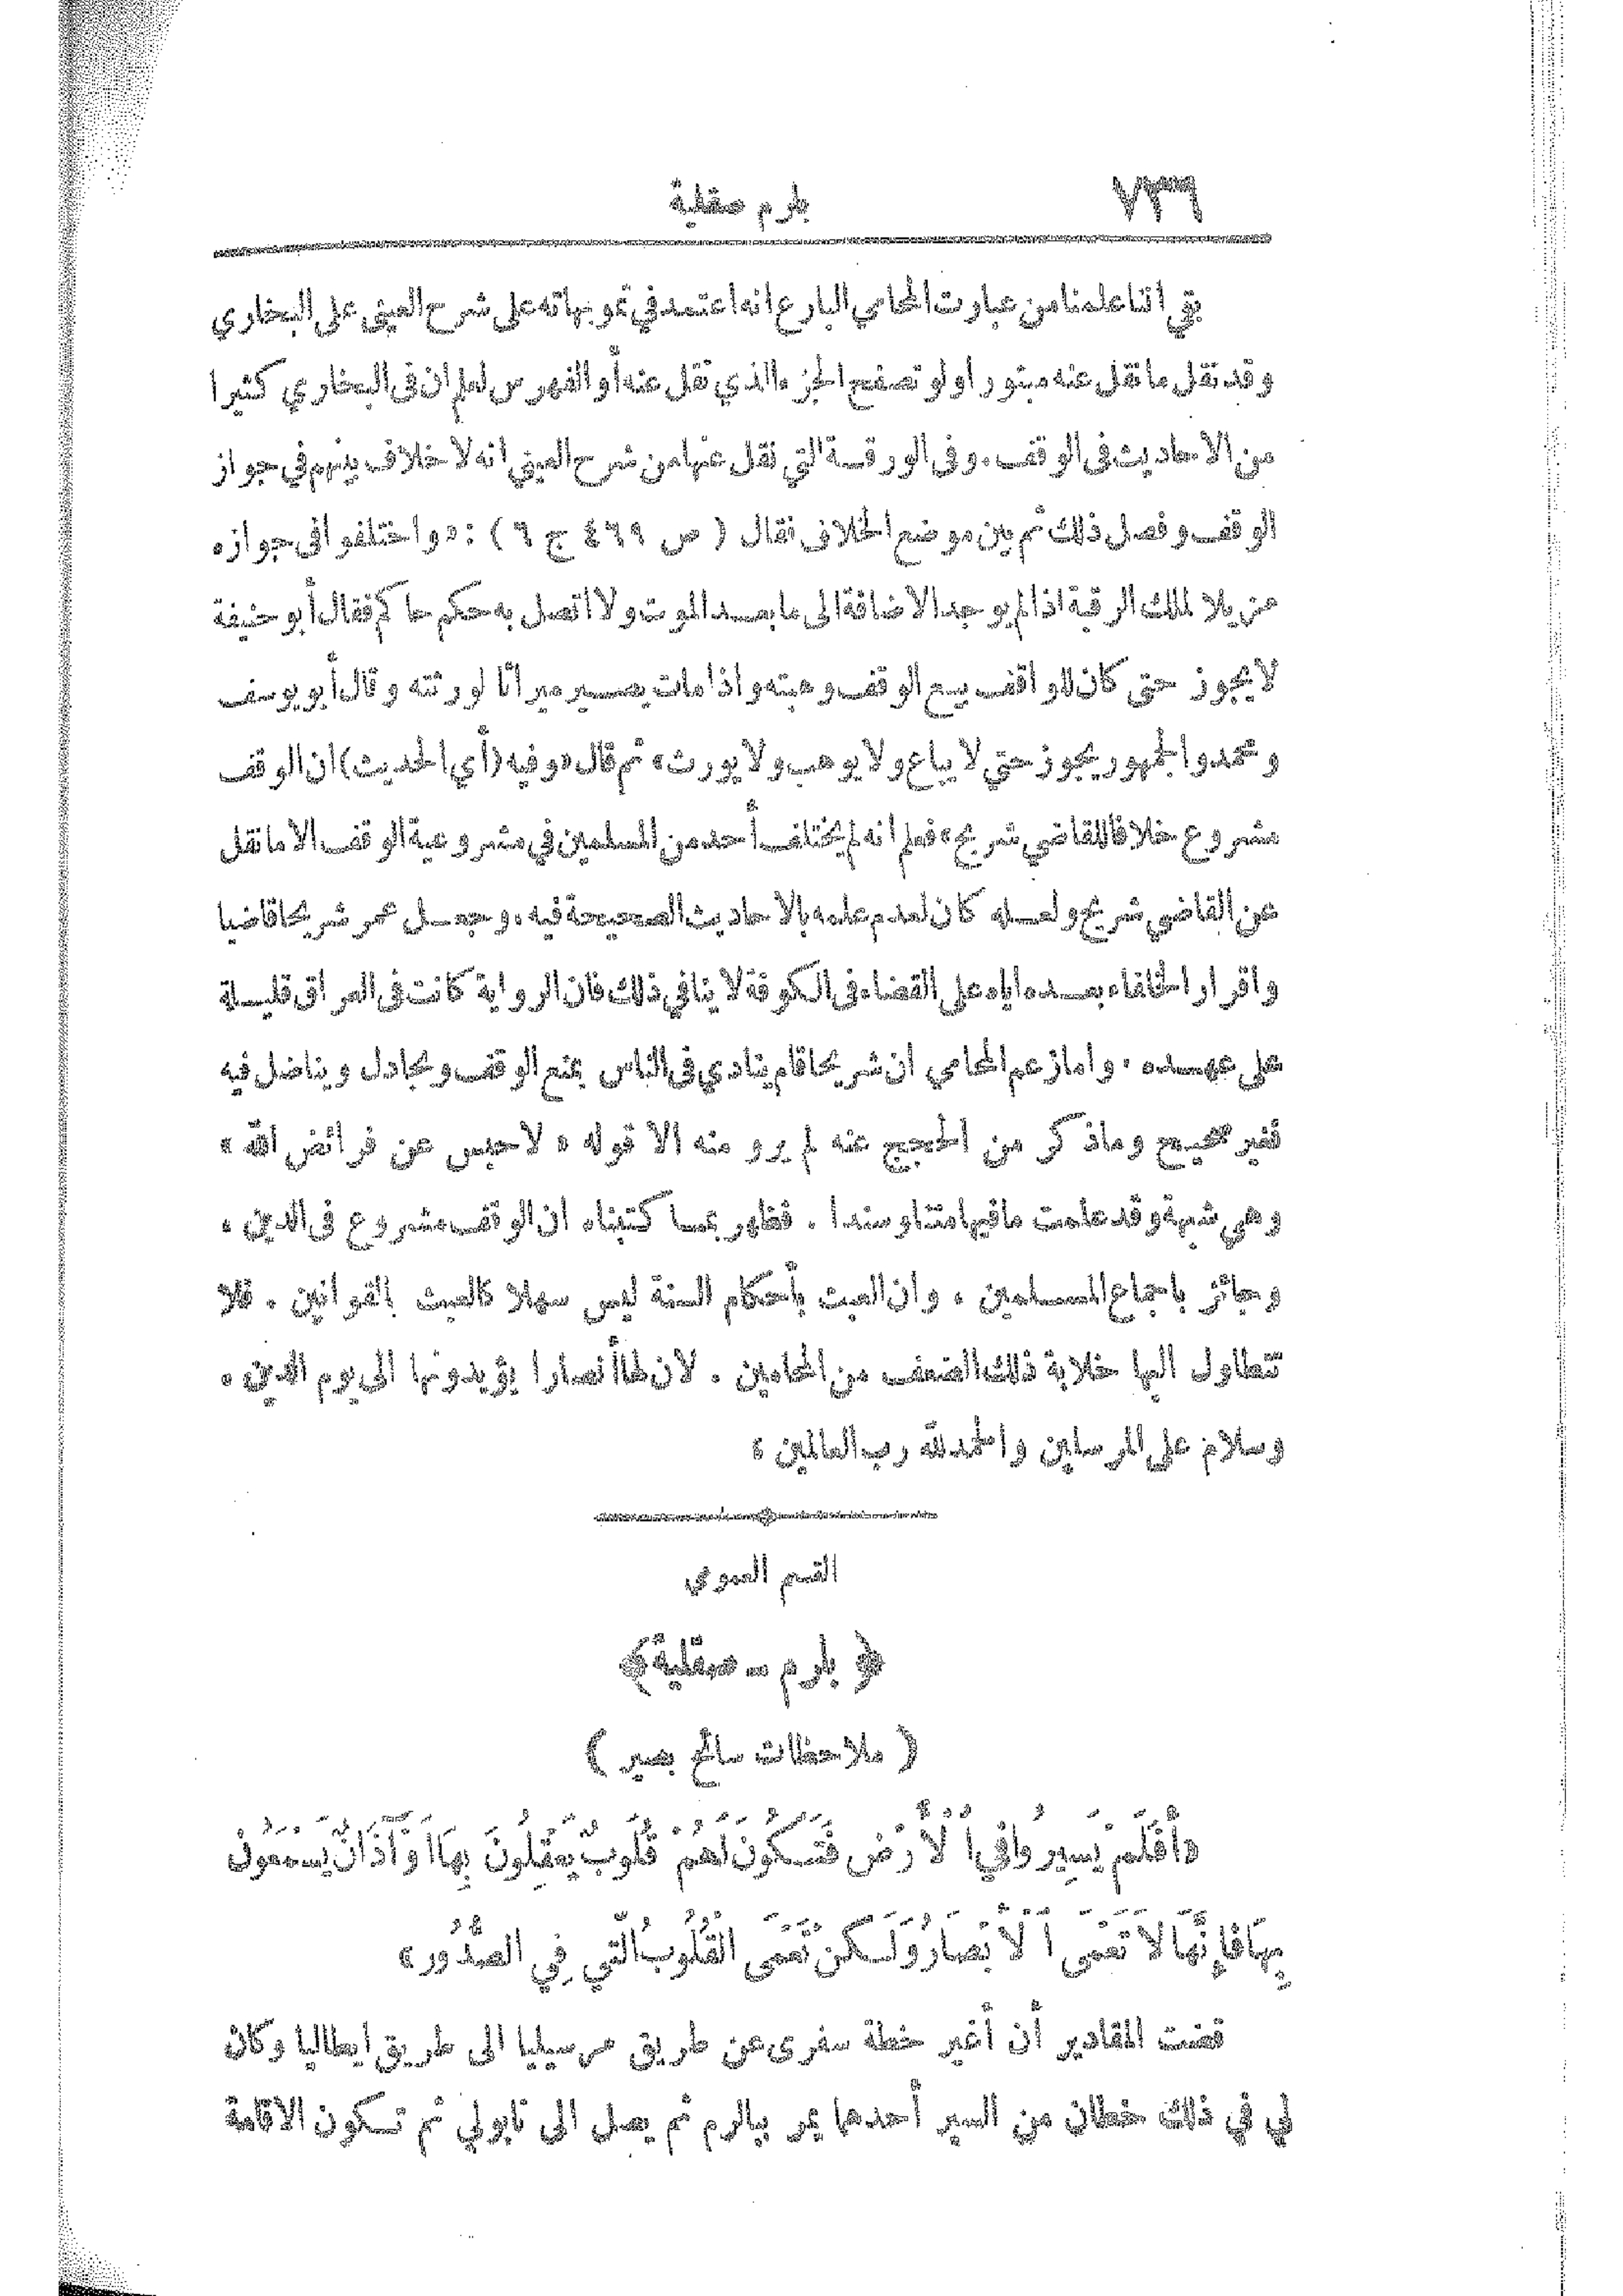 ٧٣٦ بلرم صقلية
بقي اننا علمنا من عبارت المحامي البارع انه اعتمد في تمويهاته على شرح العيني على البخاري
وقد نقل ما نقل عنه مبتورا ولو تصفح الجزء الذي نقل عنه أو الفهرس لعلم ان في البخاري كثيرا
من الاحاديث في الوقف. وفي الورقة التي نقل عنها من شرح العيني انه لا خلاف بينهم في جواز
الوقف وفصل ذلك ثم بين موضع الخلاف فقال ( ص ٤٦٩ ج ٦ ) : «واختلفوا في جوازه
مزيلا لملك الرقبة اذا لم يوجد الاضافة الى ما بعد الموت ولا اتصل به حكم حاكم فقال أبو حنيفة
لا يجوز حتى كان للواقف بيع الوقف وهبته واذا مات يصير ميراثا لورثته وقال أبو يوسف
ومحمد والجمهور يجوز حتي لا يباع ولا يوهب ولا يورث» ثم قال «وفيه (أي الحديث) ان الوقف
مشروع خلافا للقاضي شريح» فعلم انه لم يختلف أحد من المسلمين في مشروعية الوقف الا ما نقل
عن القاضي شريح ولعله كان لعدم علمه بالاحاديث الصحيحة فيه. وجعل عمر شريحا قاضيا
واقرار الخلفاء بعده اياه على القضاء في الكوفة لا ينافي ذلك فان الرواية كانت في العراق قليلة
على عهده . واما زعم المحامي ان شريحا قام ينادي في الناس بمنع الوقف ويجادل ويناضل فيه
فغير صحيح وما ذكر من الحجج عنه لم يرو منه الا قوله « لا حبس عن فرائض الله »
وهي شبهة وقد علمت ما فيها متنا وسندا . فظهر بما كتبناه ان الوقف مشروع في الدين ،
وجائز باجماع المسلمين ، وان العبث بأحكام السنة ليس سهلا كالعبث بالقوانين . فلا
تتطاول اليها خلابة ذلك الضعف من المحامين . لان لها أنصارا يؤيدونها الى يوم الدين ،
وسلام على المرسلين والحمد لله رب العالمين ؛
القسم العمومي
﴿ بلرم ــ صقلية ﴾
( ملاحظات سائح بصير )
«أَفَلَمْ يَسِيرُوا فِي الْأَرْضِ فَتَكُونَ لَهُمْ قُلُوبٌ يَعْقِلُونَ بِهَا أَوْ آذَانٌ يَسْمَعُونَ
بِهَا فَإِنَّهَا لَا تَعْمَى الْأَبْصَارُ وَلَـكِنْ تَعْمَى الْقُلُوبُ الَّتِي فِي الصُّدُورِ»
قضت المقادير أن أغير خطة سفرى عن طريق مرسيليا الى طريق ايطاليا وكان
لي في ذلك خطان من السير أحدهما يمر ببالرم ثم يصل الى نابولي ثم تكون الاقامة